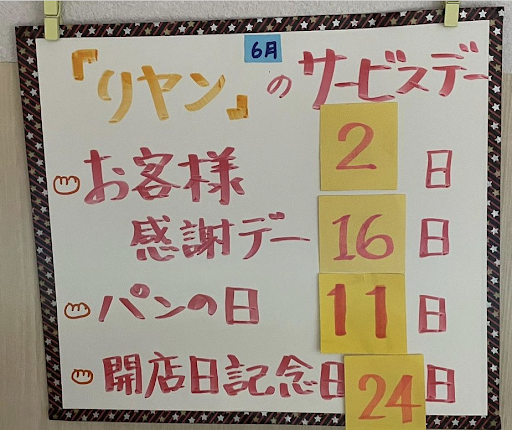 6月
『リヤン』のサービスデー
お客様 2日
感謝デー 16日
パンの日 11日
開店日記念日 24日